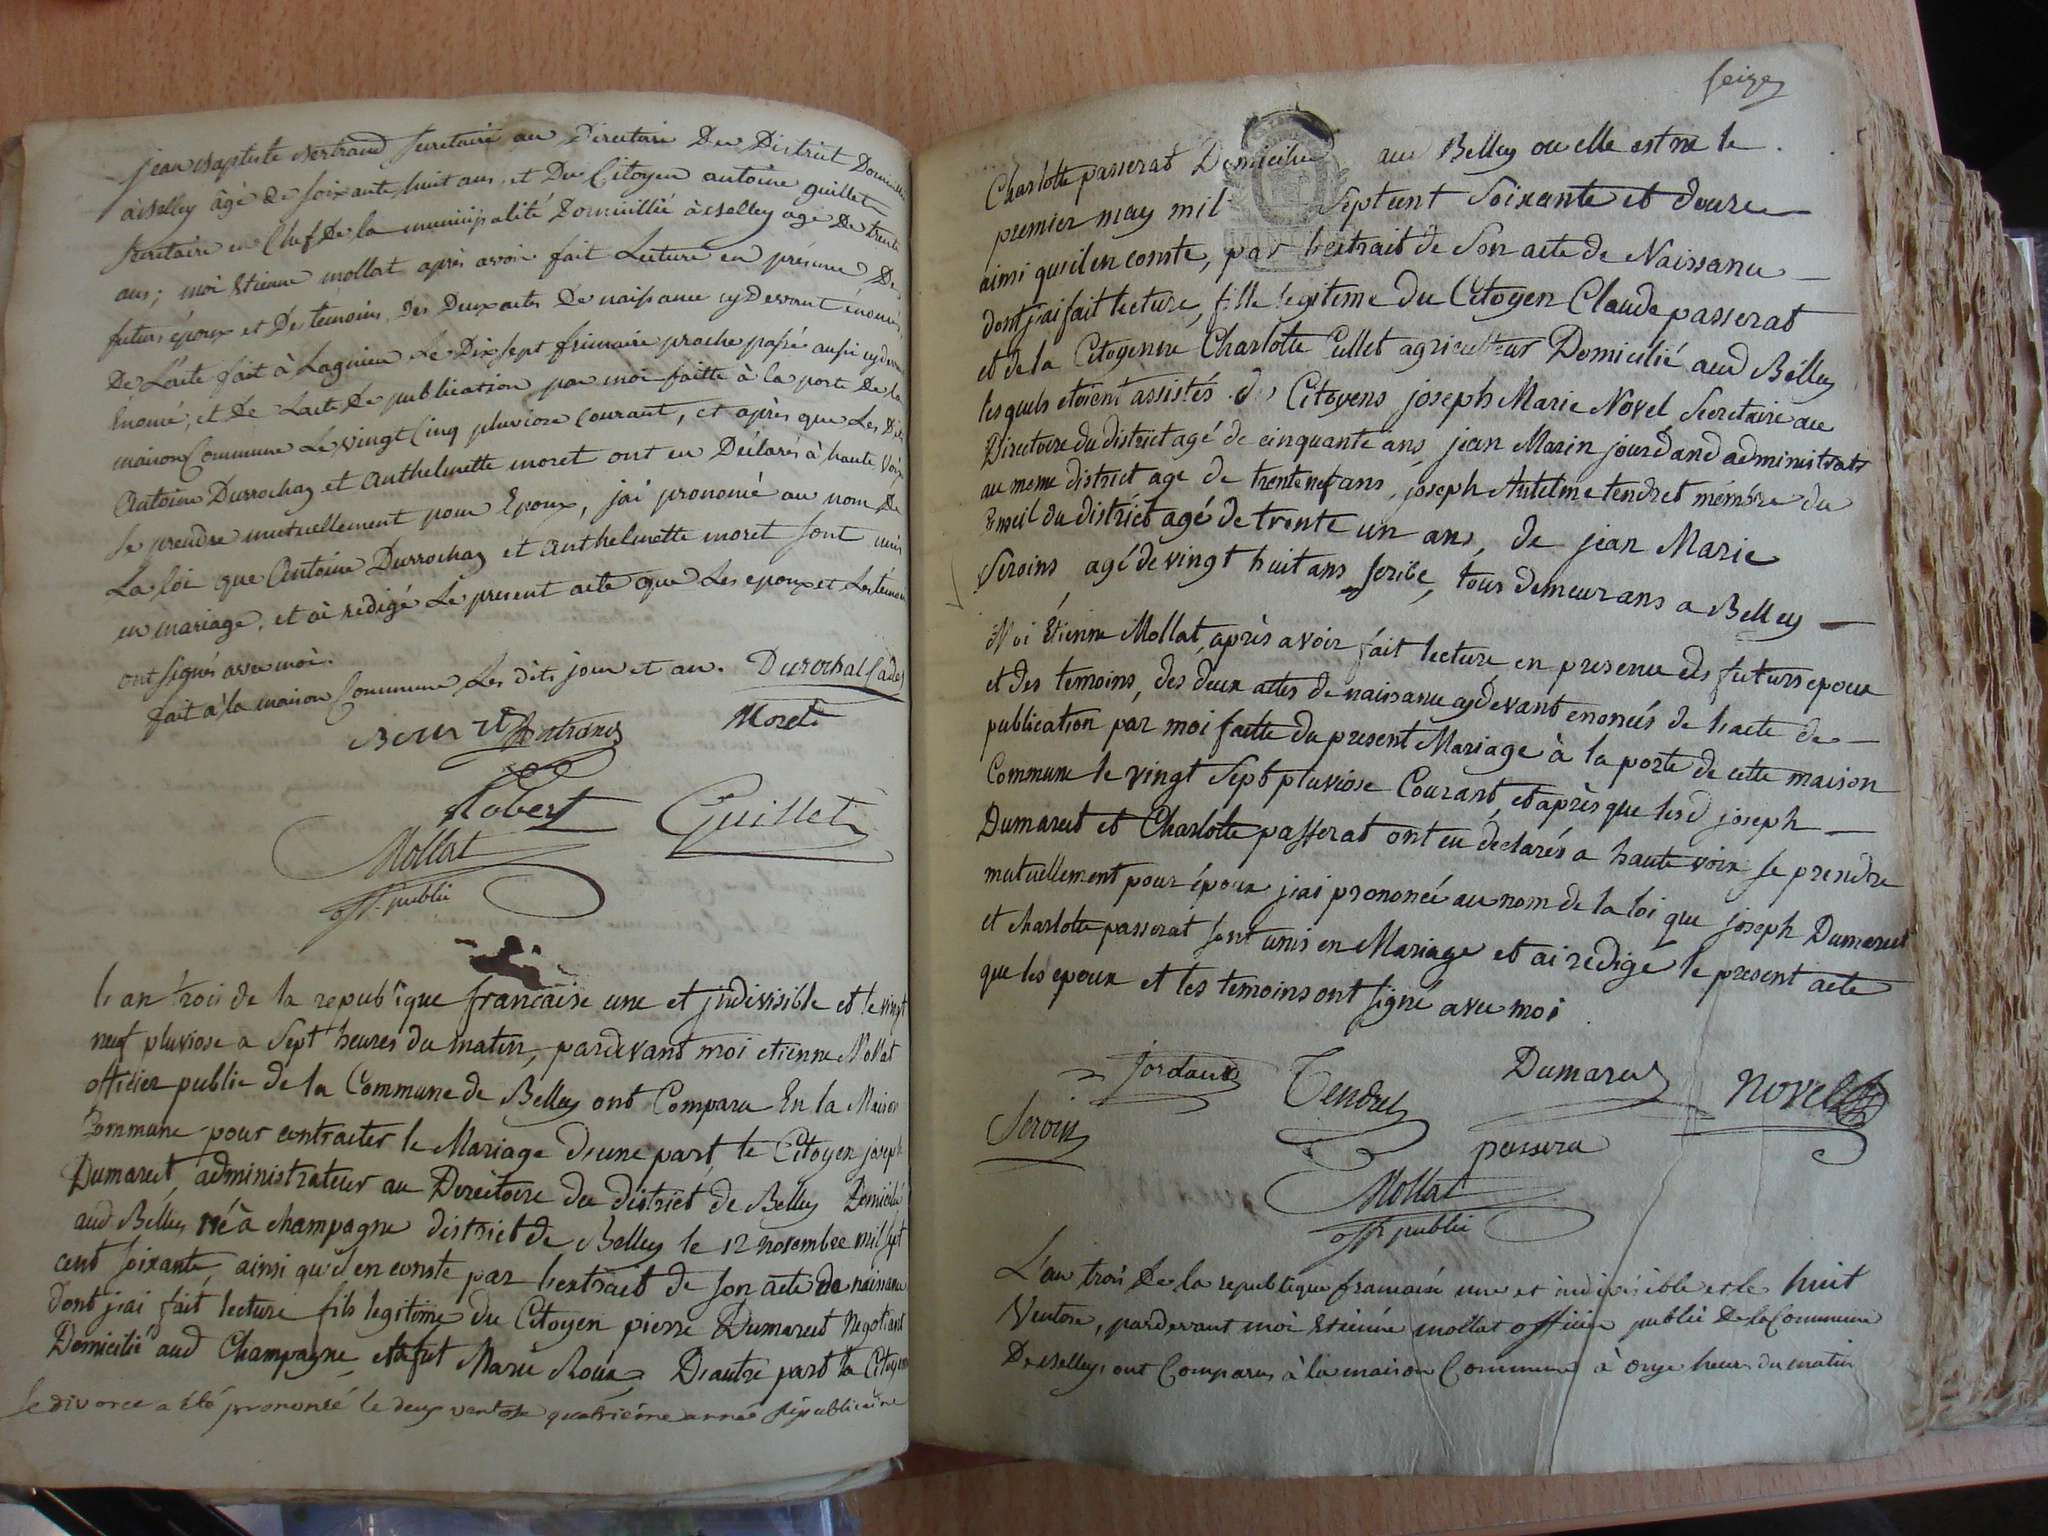 jean Baptiste Bertrand secretaire au Directoire Du District Domicilié
à Belley âgé De soixante huit ans, et Du Citoyen antoine guillet
secretaire en Chef De la municipalité Domicillié à Belley age De trente
ans; moi Etienne mollat après avoir fait Lecture en présence De
futurs époux et Des temoins, des Deux actes De naissance cy Devant énoncés
De L'acte fait à Lagnieu Le Dix sept frimaire proche passé aussi cy devant
énoncé, et De Lacte De publication par moi faitte à la porte De la
maison Commune Le vingt Cinq pluviose courant, et après que Les Dits
Antoine Durrochaz et Anthelmette moret ont eu Déclarés à haute voix
se prendre mutuellement pour Epoux, jai prononcé au nom De
La loi que Antoine Durrochaz et Anthelmette moret sont unis
en mariage, et ai redigé Le present acte que Les epoux et Les témoins
ont signés avec moi.
fait à la maison Commune Les dits jour et an. Durochat
Bertrand Moret
Robert Guillet
Mollat
off. public
l'an trois de la republique francaise une et jndivisible et le vingt
neuf pluviose a sept heures du matin, pardevant moi etienne Mollat
officier public de la Commune de Belley ont Comparu En la Maison
Commune pour contracter le Mariage D'une part le Citoyen joseph
Dumarest, administrateur au Directoire du district de Belley Domicilié
aud Belley né à champagne district de Belley le 12 novembre mil sept
cent soixante, ainsi qu'il en conste par l'extrait de son acte de naissance
dont j'ai fait lecture fils legitime du Citoyen pierre Dumarest Negotiant
Domicilié aud Champagne, et Marie Roux, D'autre part la Citoyenne
le divorce a été prononcé le deux ventose quatriéme année républicaine
seize
Charlotte passerat Domiciliée aud Belley ou elle est née le
premier may mil sept cent soixante et douze
ainsi qu'il en conste, par l'extrait de son acte de Naissance
dont j'ai fait lecture, fille legitime du Citoyen Claude passerat
et de la Citoyenne Charlotte Cullet agriculteur Domicilié aud Belley
lesquels etoient assistés des Citoyens joseph Marie Novel secretaire au
Directoire du district agé de cinquante ans, jean Marin jourdand administrateur
au meme district age de trente neuf ans, joseph Antelme tendret mémbre du
Conseil du district agé de trente un ans, de jean Marie
Seroins, agé de vingt huit ans scribe, tous demeurans a Belley
Moi Etienne Mollat, après avoir fait lecture en presence des futurs epoux
et des temoins, des deux actes de naissance cydevant enoncés de lacte de
publication par moi faitte du present Mariage à la porte de cette maison
Commune le vingt sept pluviose Courant, et après que lesd joseph
Dumarest et Charlotte passerat ont eu declarés a haute voix se prendre
mutuellement pour époux j'ai prononcé au nom de la loi que joseph Dumarest
et charlotte passerat sont unis en Mariage et ai redigé le present acte
que les epoux et les temoins ont signé avec moi
Jordand Tendret Dumarest Novel
Seroin passera
Mollat
off. public
L'an trois De la republique francaise une et indivisible et le huit
Ventose, pardevant moi Etienne mollat officier public De la Commune
De Belley, ont Comparus à la maison Commune à onze heures du matin